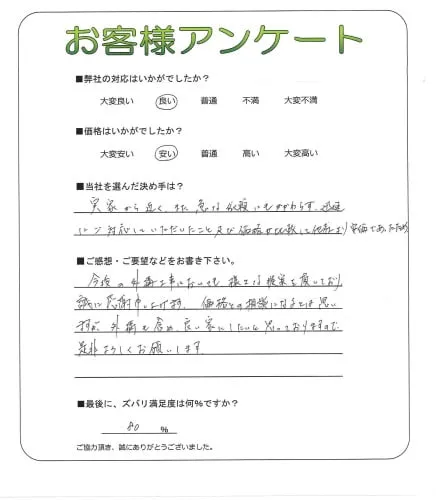 お客様アンケート
■弊社の対応はいかがでしたか？
大変良い 良い 普通 不満 大変不満
■価格はいかがでしたか？
大変安い 安い 普通 高い 大変高い
■当社を選んだ決め手は？
実家から近く、また急な依頼にもかかわらず、迅速
に対応していただいたこと及び価格が比較して他社より安価であったため
■ご感想・ご要望などをお書き下さい。
今後の外構工事においても様々な提案を頂いており
誠に感謝申し上げます。価格との相談になるとは思い
ますが、外構も含め、良い家にしたいと思っておりますので
是非よろしくお願いします。
■最後に、ズバリ満足度は何％ですか？
80 ％
ご協力頂き、誠にありがとうございました。